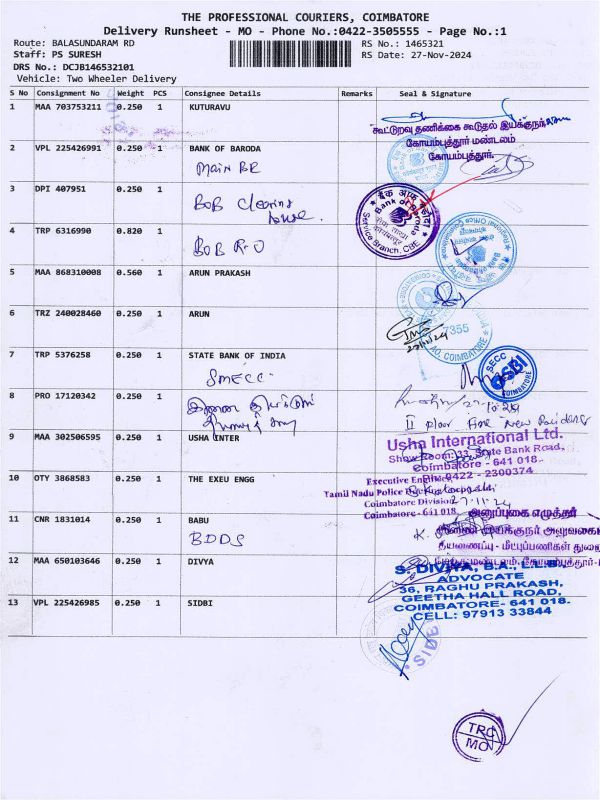 THE PROFESSIONAL COURIERS, COIMBATORE
Delivery Runsheet - MO - Phone No.:0422-3505555 - Page No.:1
Route: BALASUNDARAM RD
RS No.: 1465321
Staff: PS SURESH
RS Date: 27-Nov-2024
DRS No.: DCJB146532101
Vehicle: Two Wheeler Delivery
S No Consignment No Weight PCS Consignee Details Remarks Seal & Signature
1 MAA 703753211 0.250 1 KUTURAVU
கூட்டுறவு தணிக்கை கூடுதல் இயக்குநர்
கோயம்புத்தூர் மண்டலம்
கோயம்புத்தூர்.
2 VPL 225426991 0.250 1 BANK OF BARODA
Main BR
3 DPI 407951 0.250 1
BOB Clearing
House.
बैंक ऑफ़ बड़ौदा
Bank of Baroda
Service Branch, CBE
4 TRP 6316990 0.820 1
BOB R-O
5 MAA 868310008 0.560 1 ARUN PRAKASH
6 TRZ 240028460 0.250 1 ARUN
7355
AO, COIMBATORE
7 TRP 5376258 0.250 1 STATE BANK OF INDIA
SMECC
SECC
SBI
COIMBATORE
8 PRO 17120342 0.250 1
இணை இயக்குநர்
II floor Fire New
9 MAA 302506595 0.250 1 USHA INTER
Usha International Ltd.
Show Room: 33, State Bank Road,
Coimbatore - 641 018.
Ph: 0422 - 2300374
10 OTY 3868583 0.250 1 THE EXEU ENGG
Executive Engineer
Tamil Nadu Police
Coimbatore Division
Coimbatore - 641 018.
27-11-24
11 CNR 1831014 0.250 1 BABU
BDDS
அனுப்புகை எழுத்தர்
இணை இயக்குநர் அலுவலகம்
தீயணைப்பு - மீட்புப்பணிகள் துறை
12 MAA 650103646 0.250 1 DIVYA
S. DIVYA, B.A., L.L.B.,
ADVOCATE
36, RAGHU PRAKASH,
GEETHA HALL ROAD,
COIMBATORE- 641 018.
CELL: 97913 33844
13 VPL 225426985 0.250 1 SIDBI
TRC
MO